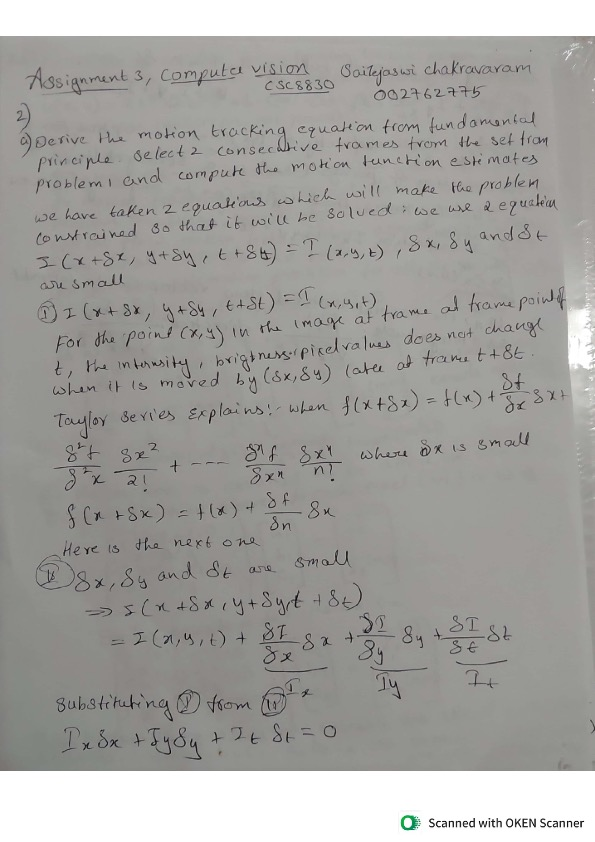 Assignment 3, Computer vision Sailejaswi chakravaram
CSC8830 002762775
2)
a) Derive the motion tracking equation from fundamental
principle. Select 2 consecutive frames from the set from
problem 1 and compute the motion function estimates
we have taken 2 equations which will make the problem
constrained so that it will be solved: we use 2 equation
I(x+δx, y+δy, t+δt) = I(x,y,t), δx, δy and δt
are small
Ⓘ I(x+δx, y+δy, t+δt) = I(x,y,t)
For the point (x,y) in the image at frame at frame point of
t, the intensity, brightness, pixel values does not change
when it is moved by (δx,δy) later at frame t+δt.
Taylor Series Explains:- when f(x+δx) = f(x) + δf/δx δx +
δ²f/δ²x δx²/2! + ---- δⁿf/δxⁿ δxⁿ/n! where δx is small
f(x+δx) = f(x) + δf/δn δx
Here is the next one
Ⓘⓘ δx, δy and δt are small
=> I(x+δx, y+δy, t+δt)
= I(x,y,t) + δI/δx δx + δI/δy δy + δI/δt δt
Ix Iy It
Substituting Ⓘ from Ⓘⓘ
Ixδx + Iyδy + It δt = 0
Scanned with OKEN Scanner